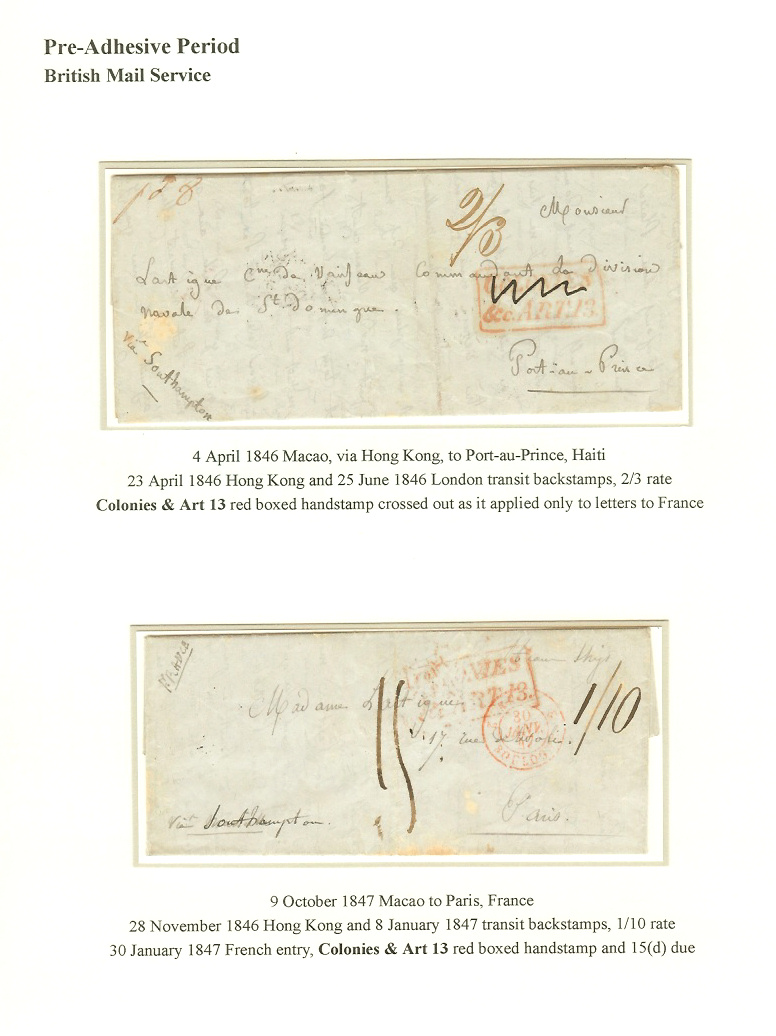 Pre-Adhesive Period
British Mail Service
2/3
Monsieur
Lartigue Cne de Vaisseau Commandant la division
navale de St domingue.
&c. ART. 13.
via Southampton
Port-au-Prince
4 April 1846 Macao, via Hong Kong, to Port-au-Prince, Haiti
23 April 1846 Hong Kong and 25 June 1846 London transit backstamps, 2/3 rate
Colonies & Art 13 red boxed handstamp crossed out as it applied only to letters to France
NIES
ART. 13.
Madame Lartigue
1/10
17. rue de
30
JANV
BOULOGNE
via Southampton.
Paris.
9 October 1847 Macao to Paris, France
28 November 1846 Hong Kong and 8 January 1847 transit backstamps, 1/10 rate
30 January 1847 French entry, Colonies & Art 13 red boxed handstamp and 15(d) due